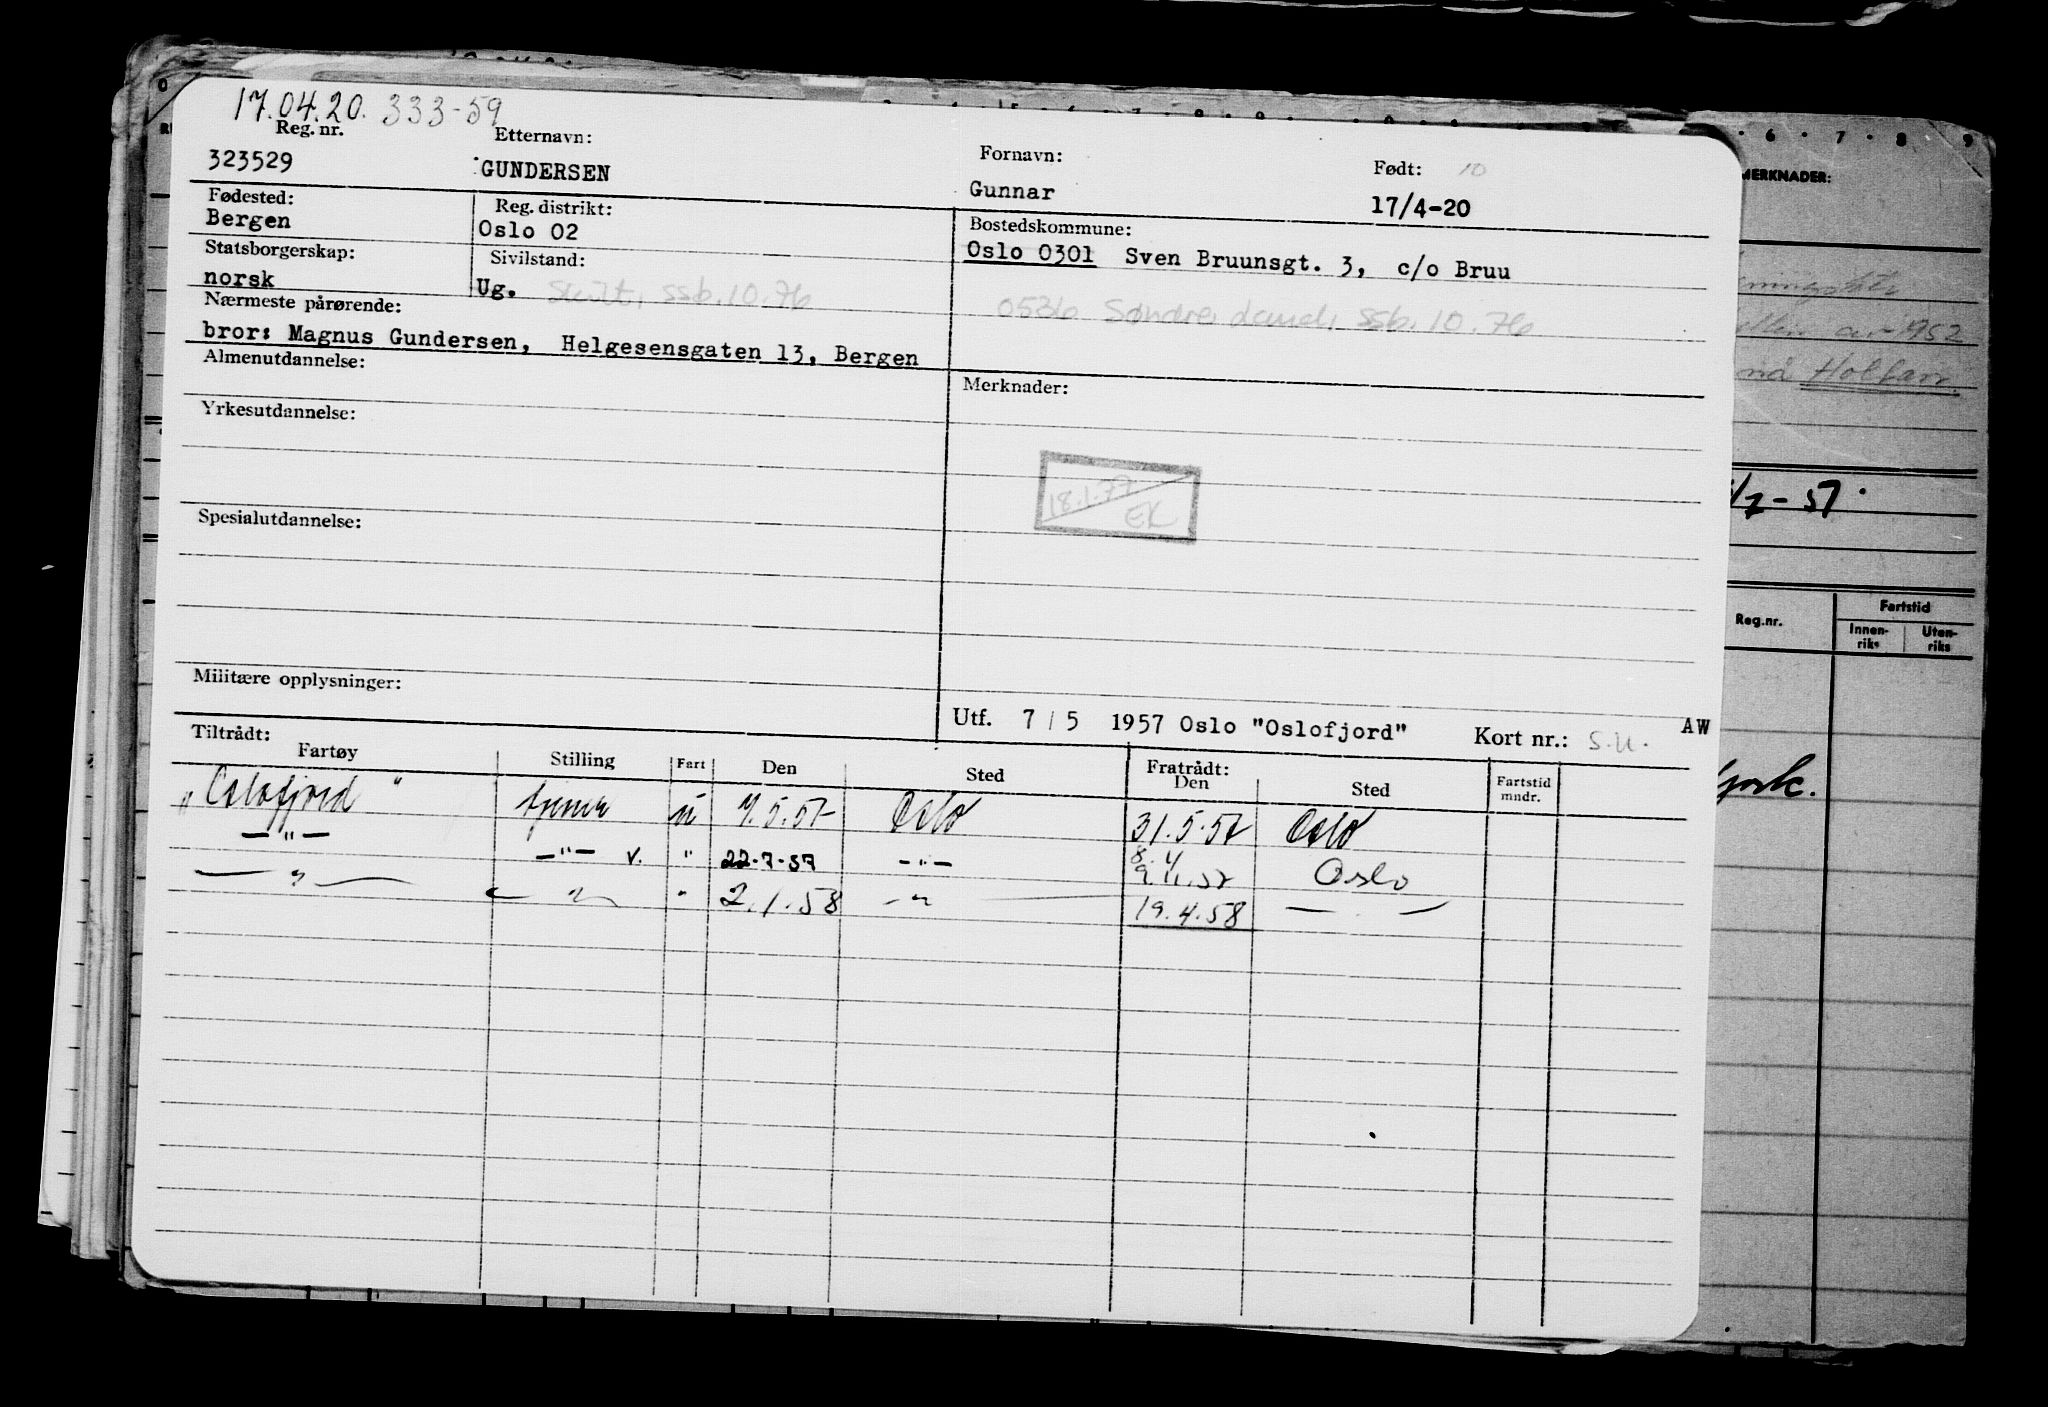 17.04.20. 333-59
Reg. nr. Etternavn: Fornavn: Født: 10
323529 GUNDERSEN Gunnar 17/4-20
Fødested: Reg. distrikt: Bostedskommune:
Bergen Oslo 02 Oslo 0301 Sven Bruunsgt. 3, c/o Bruu
Statsborgerskap: Sivilstand:
norsk Ug. Skilt, ssb. 10.76
0536 Søndre Land, ssb. 10.76
Nærmeste pårørende:
bror: Magnus Gundersen, Helgesensgaten 13, Bergen
Almenutdannelse: Merknader:
Yrkesutdannelse:
18.1.77
EK
Spesialutdannelse:
Militære opplysninger:
Utf. 7/5 1957 Oslo "Oslofjord" Kort nr.: S.U. AW
Tiltrådt: Fratrådt:
Fartøy Stilling Fart Den Sted Den Sted Fartstid mndr.
"Oslofjord" tjener u 7.5.57 Oslo 31.5.57 Oslo
—"— —"— v. " 22.7.57 —"— 8.4
9.11.57 Oslo
—"— —"— " 2.1.58 —"— 19.4.58 —"—
6 7 8 9
MERKNADER:
1952
Holfarr.
/7-57.
Reg.nr. Fartstid
Innen-riks Uten-riks